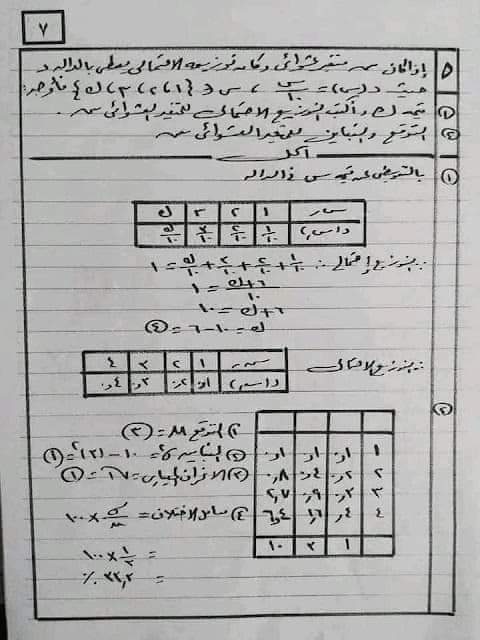 ٧
٥ إذا كان س متغير عشوائي وكان توزيعه الاحتمالي يعطى بالدالة د
حيث د(س) = س/١٠ ، س ∈ {١، ٢، ٣، ك} فأوجد:
① قيمة ك وأكتب التوزيع الاحتمالي للمتغير العشوائي س.
② التوقع والتباين للمتغير العشوائي س
الحل
① بالتعويض عن قيمة س في الدالة
س ر ١ ٢ ٣ ك
د(س ر) ١/١٠ ٢/١٠ ٣/١٠ ك/١٠
∴ التوزيع إحتمالي ∴ ١/١٠ + ٢/١٠ + ٣/١٠ + ك/١٠ = ١
٦+ك/١٠ = ١
٦+ك = ١٠
ك = ١٠ - ٦ = ④
∴ التوزيع الاحتمالي
س ر ١ ٢ ٣ ٤
د(س ر) ٠,١ ٠,٢ ٠,٣ ٠,٤
②
١ ٠,١ ٠,١ ٠,١
٢ ٠,٢ ٠,٤ ٠,٨
٣ ٠,٣ ٠,٩ ٢,٧
٤ ٠,٤ ١,٦ ٦,٤
١ ٣ ١٠
١) التوقع μ = ③
٢) التباين σ² = ١٠ - (٣)² = ①
٣) الانحراف المعياري = √١ = ①
٤) معامل الاختلاف = σ/μ × ١٠٠
= ١/٣ × ١٠٠
= ٣٣,٣ %